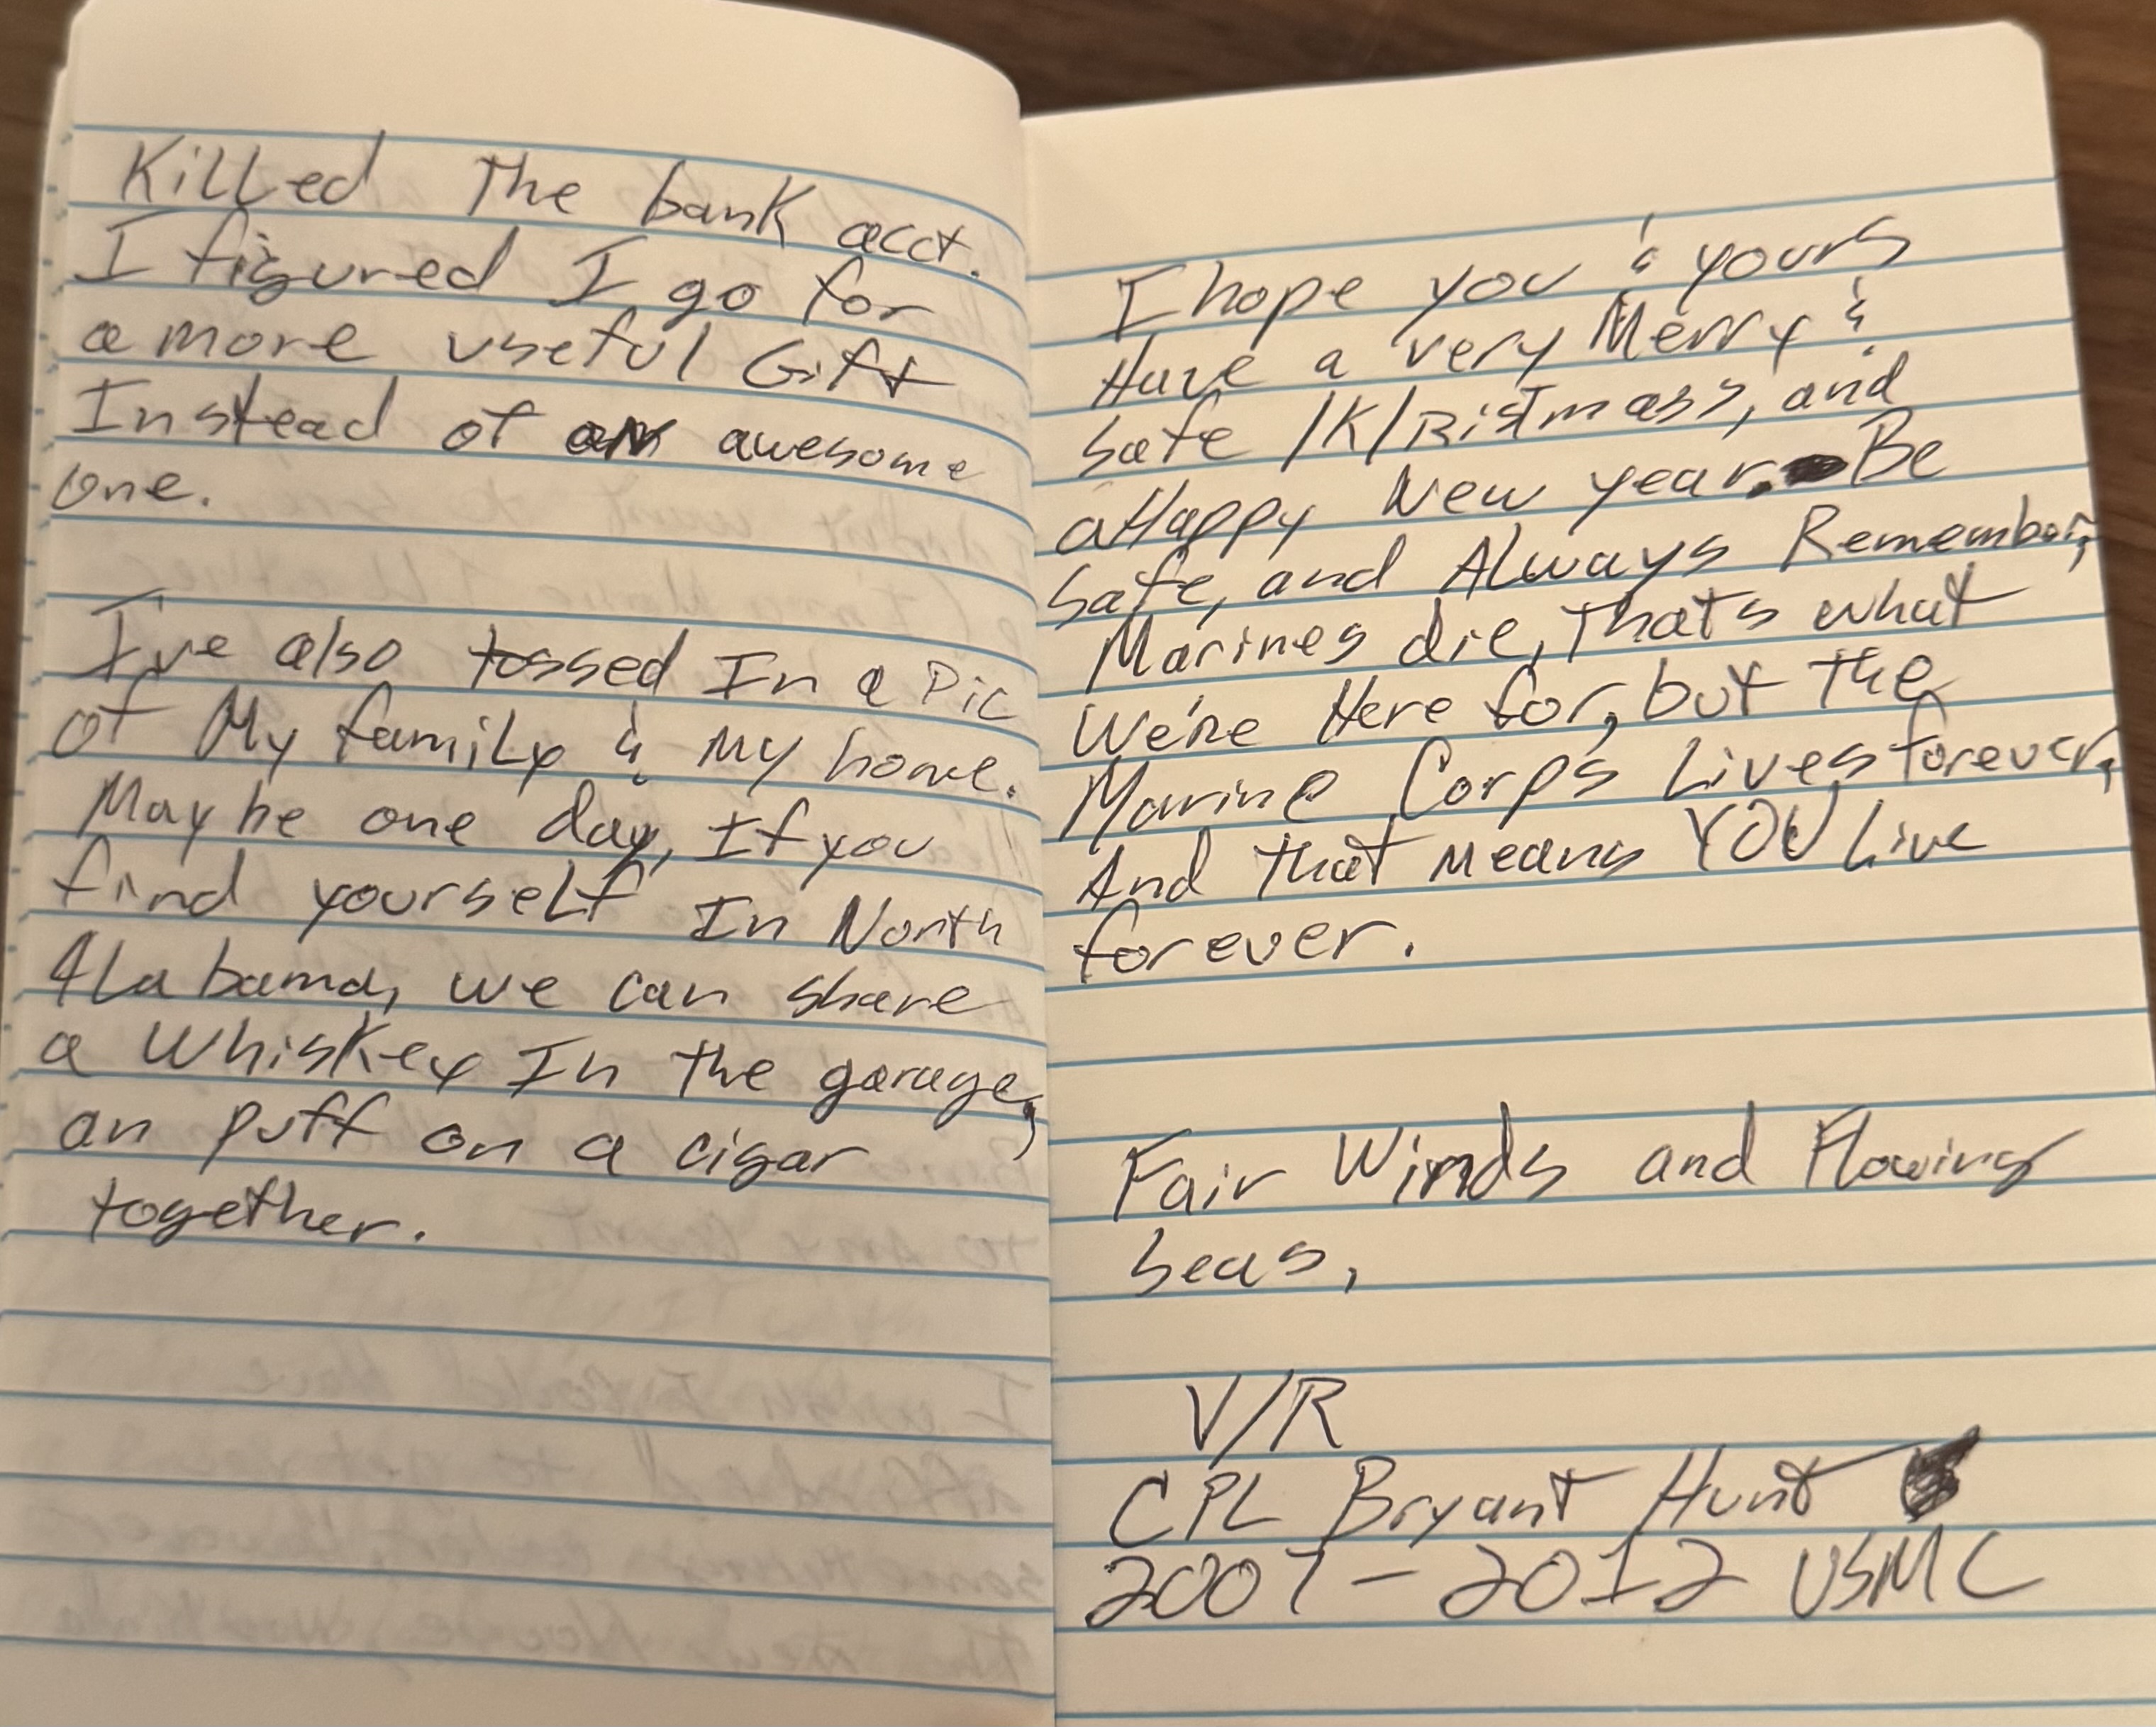 Killed The bank acct.
I figured I go for
a more useful Gift
Instead of an awesome
one.
I've also tossed In a Pic
of My family & My home.
Maybe one day, If you
find yourself In North
Alabama, we can share
a Whiskey In the garage,
an puff on a cigar
together.
I hope you & yours
Have a very Merry &
safe /K/Ristmass, and
a Happy New year. Be
safe, and Always Remember,
Marines die, Thats what
We're Here for, but The
Marine Corps Lives forever,
And That means YOU Live
forever.
Fair Winds and Flowing
Seas,
V/R
CPL Bryant Hunt
2007-2012 USMC